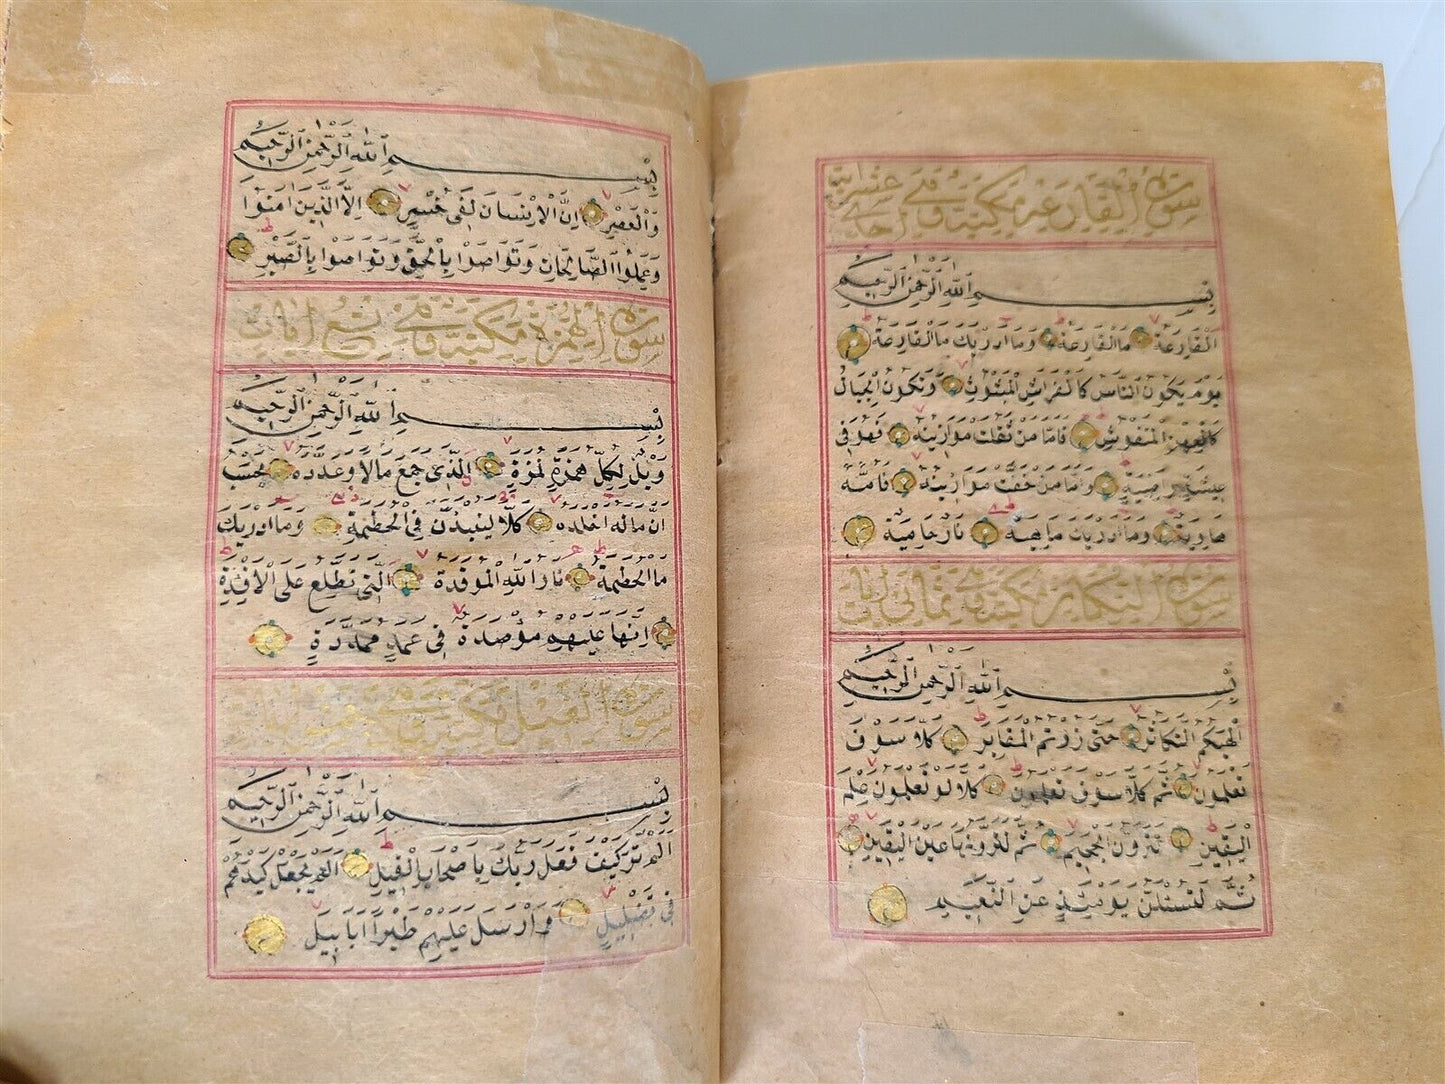 سورة القارعة مكية وهي احدى عشر اية
بِسْمِ اللّٰهِ الرَّحْمٰنِ الرَّحِيمِ
اَلْقَارِعَةُ مَا الْقَارِعَةُ وَمَا اَدْرٰيكَ مَا الْقَارِعَةُ
يَوْمَ يَكُونُ النَّاسُ كَالْفَرَاشِ الْمَبْثُوثِ وَتَكُونُ الْجِبَالُ
كَالْعِهْنِ الْمَنْفُوشِ فَاَمَّا مَنْ ثَقُلَتْ مَوَازِينُهُ فَهُوَ فِى
عِيشَةٍ رَاضِيَةٍ وَاَمَّا مَنْ خَفَّتْ مَوَازِينُهُ فَاُمُّهُ
هَاوِيَةٌ وَمَا اَدْرٰيكَ مَا هِيَهْ نَارٌ حَامِيَةٌ
سورة التكاثر مكية وهي ثماني ايات
بِسْمِ اللّٰهِ الرَّحْمٰنِ الرَّحِيمِ
اَلْهٰيكُمُ التَّكَاثُرُ حَتّٰى زُرْتُمُ الْمَقَابِرَ كَلَّا سَوْفَ
تَعْلَمُونَ ثُمَّ كَلَّا سَوْفَ تَعْلَمُونَ كَلَّا لَوْ تَعْلَمُونَ عِلْمَ
الْيَقِينِ لَتَرَوُنَّ الْجَحِيمَ ثُمَّ لَتَرَوُنَّهَا عَيْنَ الْيَقِينِ
ثُمَّ لَتُسْئَلُنَّ يَوْمَئِذٍ عَنِ النَّعِيمِ
بِسْمِ اللّٰهِ الرَّحْمٰنِ الرَّحِيمِ
وَالْعَصْرِ اِنَّ الْاِنْسَانَ لَفِى خُسْرٍ اِلَّا الَّذِينَ اٰمَنُوا
وَعَمِلُوا الصَّالِحَاتِ وَتَوَاصَوْا بِالْحَقِّ وَتَوَاصَوْا بِالصَّبْرِ
سورة الهمزة مكية وهي تسع ايات
بِسْمِ اللّٰهِ الرَّحْمٰنِ الرَّحِيمِ
وَيْلٌ لِكُلِّ هُمَزَةٍ لُمَزَةٍ اَلَّذِى جَمَعَ مَالًا وَعَدَّدَهُ يَحْسَبُ
اَنَّ مَالَهُ اَخْلَدَهُ كَلَّا لَيُنْبَذَنَّ فِى الْحُطَمَةِ وَمَا اَدْرٰيكَ
مَا الْحُطَمَةُ نَارُ اللّٰهِ الْمُوقَدَةُ اَلَّتِى تَطَّلِعُ عَلَى الْاَفْئِدَةِ
اِنَّهَا عَلَيْهِمْ مُؤْصَدَةٌ فِى عَمَدٍ مُمَدَّدَةٍ
سورة الفيل مكية وهي خمس ايات
بِسْمِ اللّٰهِ الرَّحْمٰنِ الرَّحِيمِ
اَلَمْ تَرَ كَيْفَ فَعَلَ رَبُّكَ بِاَصْحَابِ الْفِيلِ اَلَمْ يَجْعَلْ كَيْدَهُمْ
فِى تَضْلِيلٍ وَاَرْسَلَ عَلَيْهِمْ طَيْرًا اَبَابِيلَ